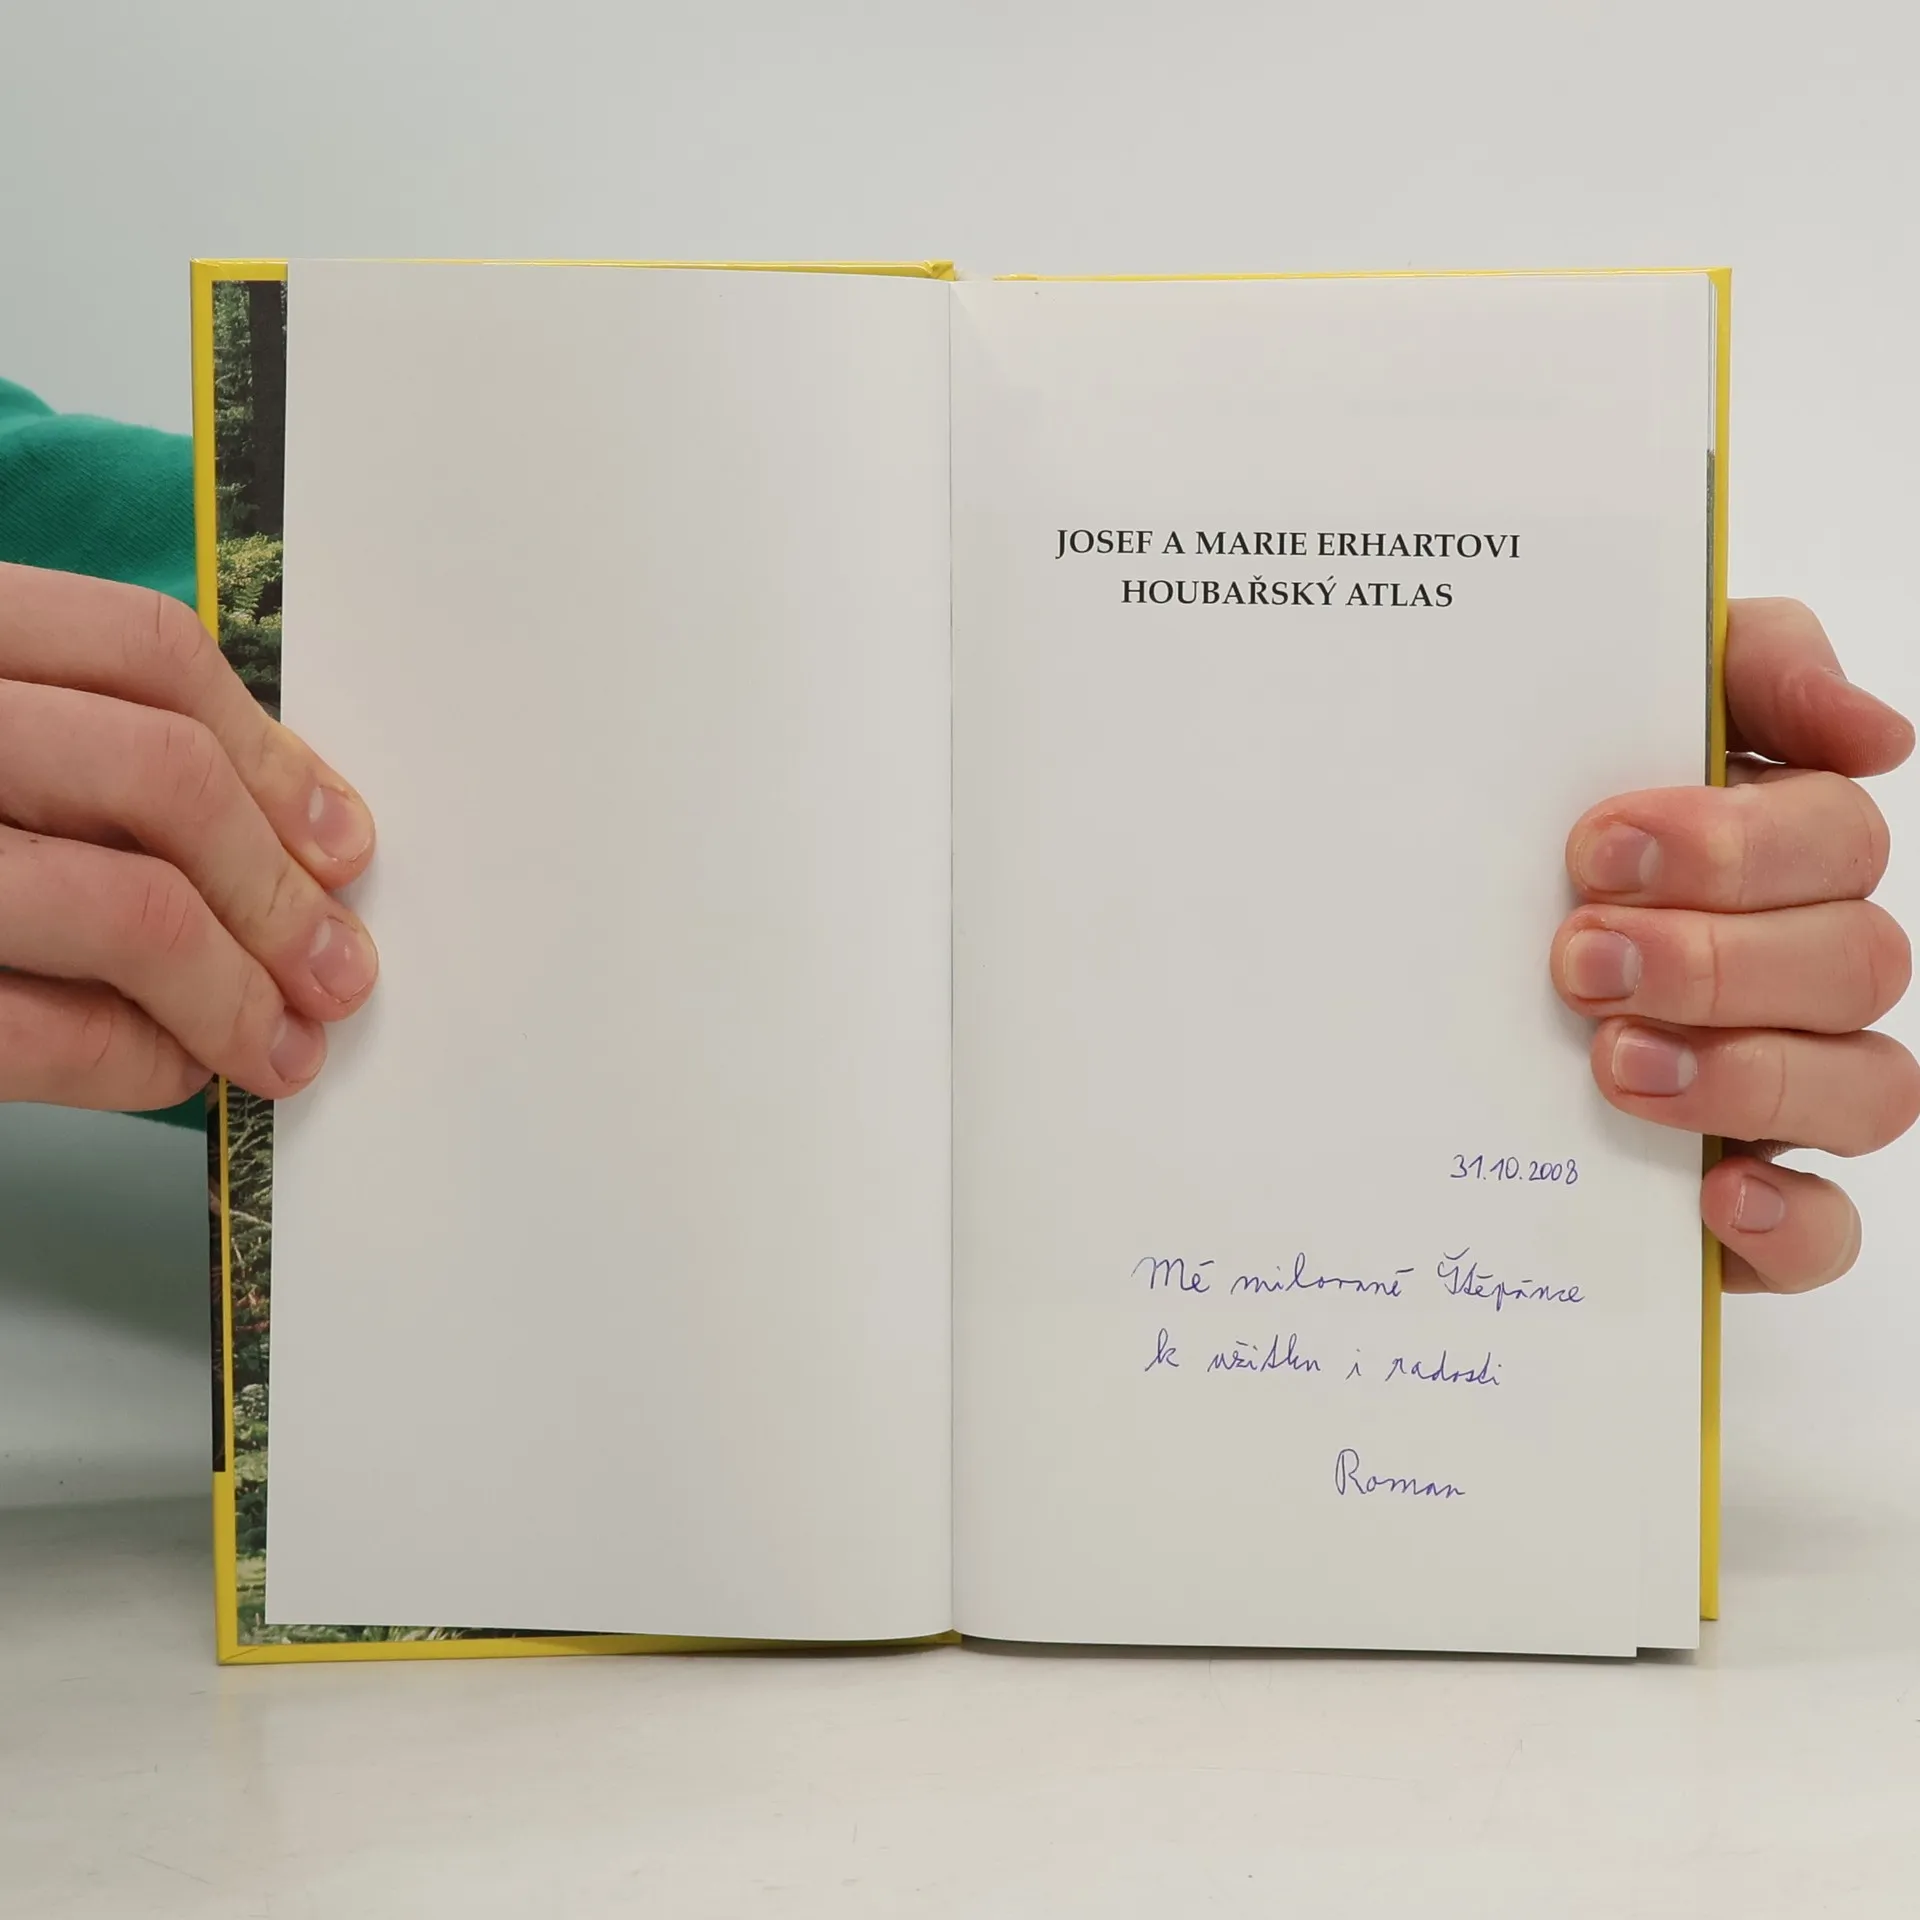 JOSEF A MARIE ERHARTOVI
HOUBAŘSKÝ ATLAS
31.10.2008
Mé milované Štěpánce
k užitku i radosti
Roman